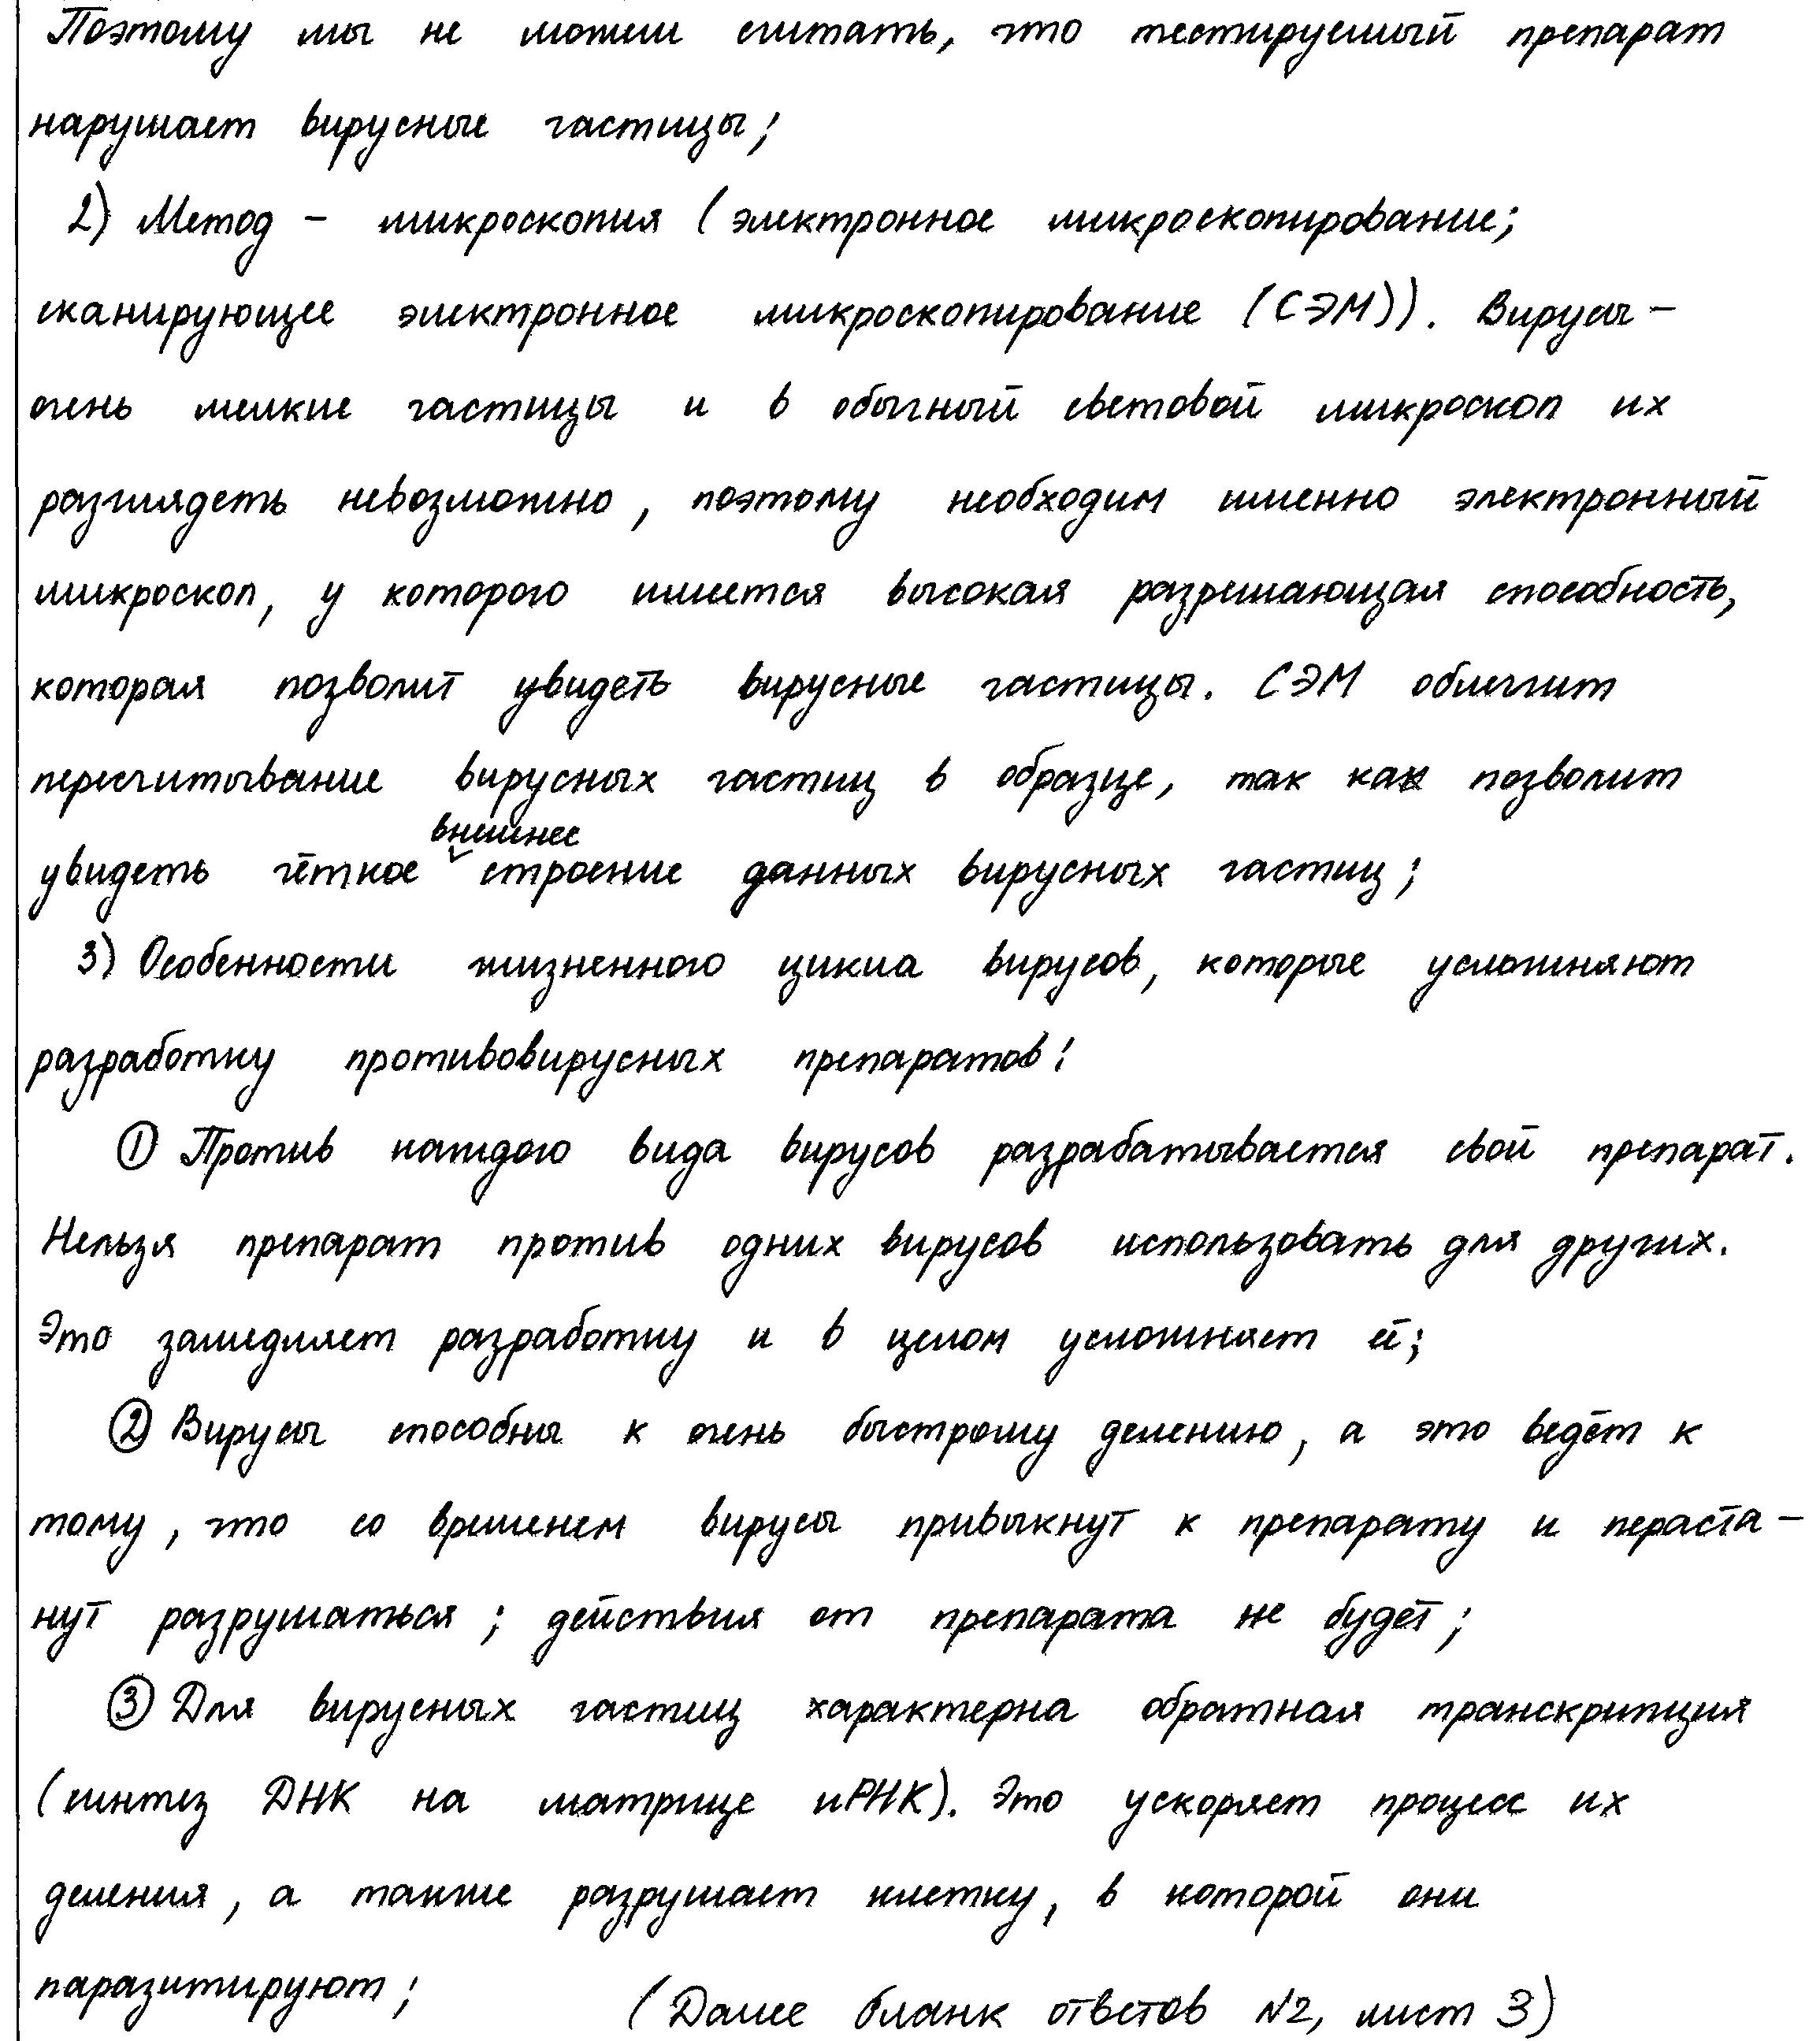 Поэтому мы не можем считать, что тестируемый препарат
нарушает вирусные частицы;
2) Метод - микроскопия (электронное микроскопирование;
сканирующее электронное микроскопирование (СЭМ)). Вирусы -
очень мелкие частицы и в обычный световой микроскоп их
разглядеть невозможно, поэтому необходим именно электронный
микроскоп, у которого имеется высокая разрешающая способность,
которая позволит увидеть вирусные частицы. СЭМ облегчит
пересчитывание вирусных частиц в образце, так как позволит
увидеть чёткое внешнее строение данных вирусных частиц;
3) Особенности жизненного цикла вирусов, которые усложняют
разработку противовирусных препаратов:
① Против каждого вида вирусов разрабатывается свой препарат.
Нельзя препарат против одних вирусов использовать для других.
Это замедляет разработку и в целом усложняет её;
② Вирусы способны к очень быстрому делению, а это ведёт к
тому, что со временем вирусы привыкнут к препарату и пераста-
нут разрушаться; действия от препарата не будет;
③ Для вирусных частиц характерна обратная транскрипция
(синтез ДНК на матрице иРНК). Это ускоряет процесс их
деления, а также разрушает клетку, в которой они
паразитируют;
(Далее бланк ответов №2, лист 3)